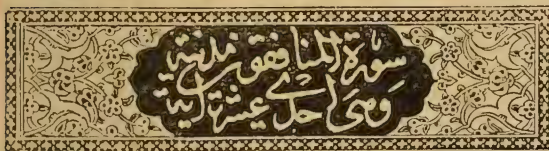 سورة المنافقون مدنية
وهى احدى عشرة اية